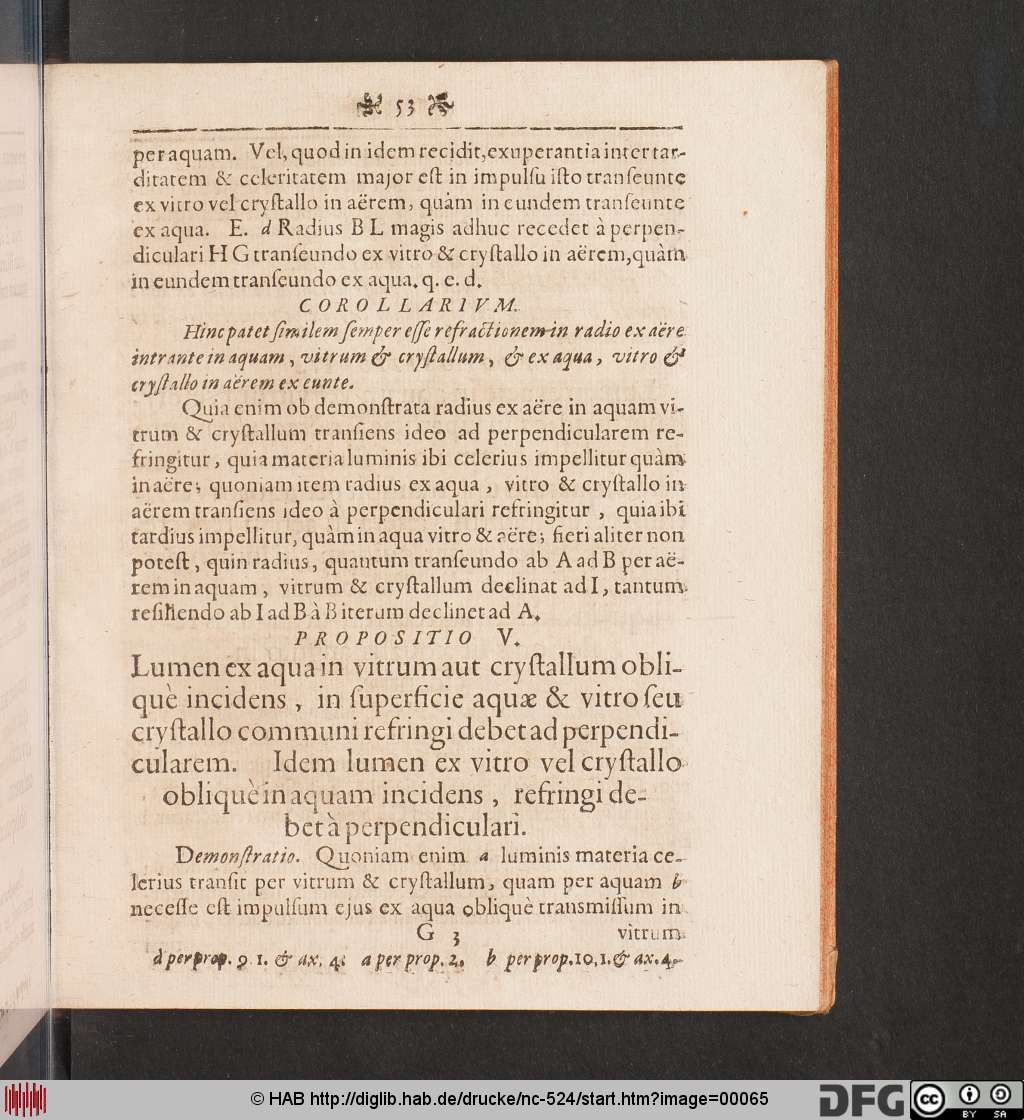 53
per aquam. Vel, quod in idem recidit, exuperantia inter tar-
ditatem & celeritatem major eſt in impulſu iſto tranſeunte
ex vitro vel cryſtallo in aërem, quàm in eundem tranſeunte
ex aqua. E. d Radius B L magis adhuc recedet à perpen-
diculari H G tranſeundo ex vitro & cryſtallo in aërem, quàm
in eundem tranſeundo ex aqua. q. e. d.
COROLLARIVM.
Hinc patet ſimilem ſemper eſſe refractionem in radio ex aëre
intrante in aquam, vitrum & cryſtallum, & ex aqua, vitro &
cryſtallo in aërem exeunte.
Quia enim ob demonſtrata radius ex aëre in aquam vi-
trum & cryſtallum tranſiens ideo ad perpendicularem re-
fringitur, quia materia luminis ibi celerius impellitur quàm
in aëre; quoniam item radius ex aqua, vitro & cryſtallo in
aërem tranſiens ideo à perpendiculari refringitur, quia ibi
tardius impellitur, quàm in aqua vitro & aëre; fieri aliter non
poteſt, quin radius, quantum tranſeundo ab A ad B per aë-
rem in aquam, vitrum & cryſtallum declinat ad I, tantum
reſiliendo ab I ad B à B iterum declinet ad A.
PROPOSITIO V.
Lumen ex aqua in vitrum aut cryſtallum obli-
què incidens, in ſuperficie aquæ & vitro ſeu
cryſtallo communi refringi debet ad perpendi-
cularem. Idem lumen ex vitro vel cryſtallo
obliquè in aquam incidens, refringi de-
bet à perpendiculari.
Demonſtratio. Quoniam enim a luminis materia ce-
lerius tranſit per vitrum & cryſtallum, quam per aquam b
neceſſe eſt impulſum ejus ex aqua obliquè transmiſſum in
G 3 vitrum
d per prop. 9. 1. & ax. 4. a per prop. 2. b per prop. 10, 1. & ax. 4.
© HAB http://diglib.hab.de/drucke/nc-524/start.htm?image=00065
DFG
cc
BY SA